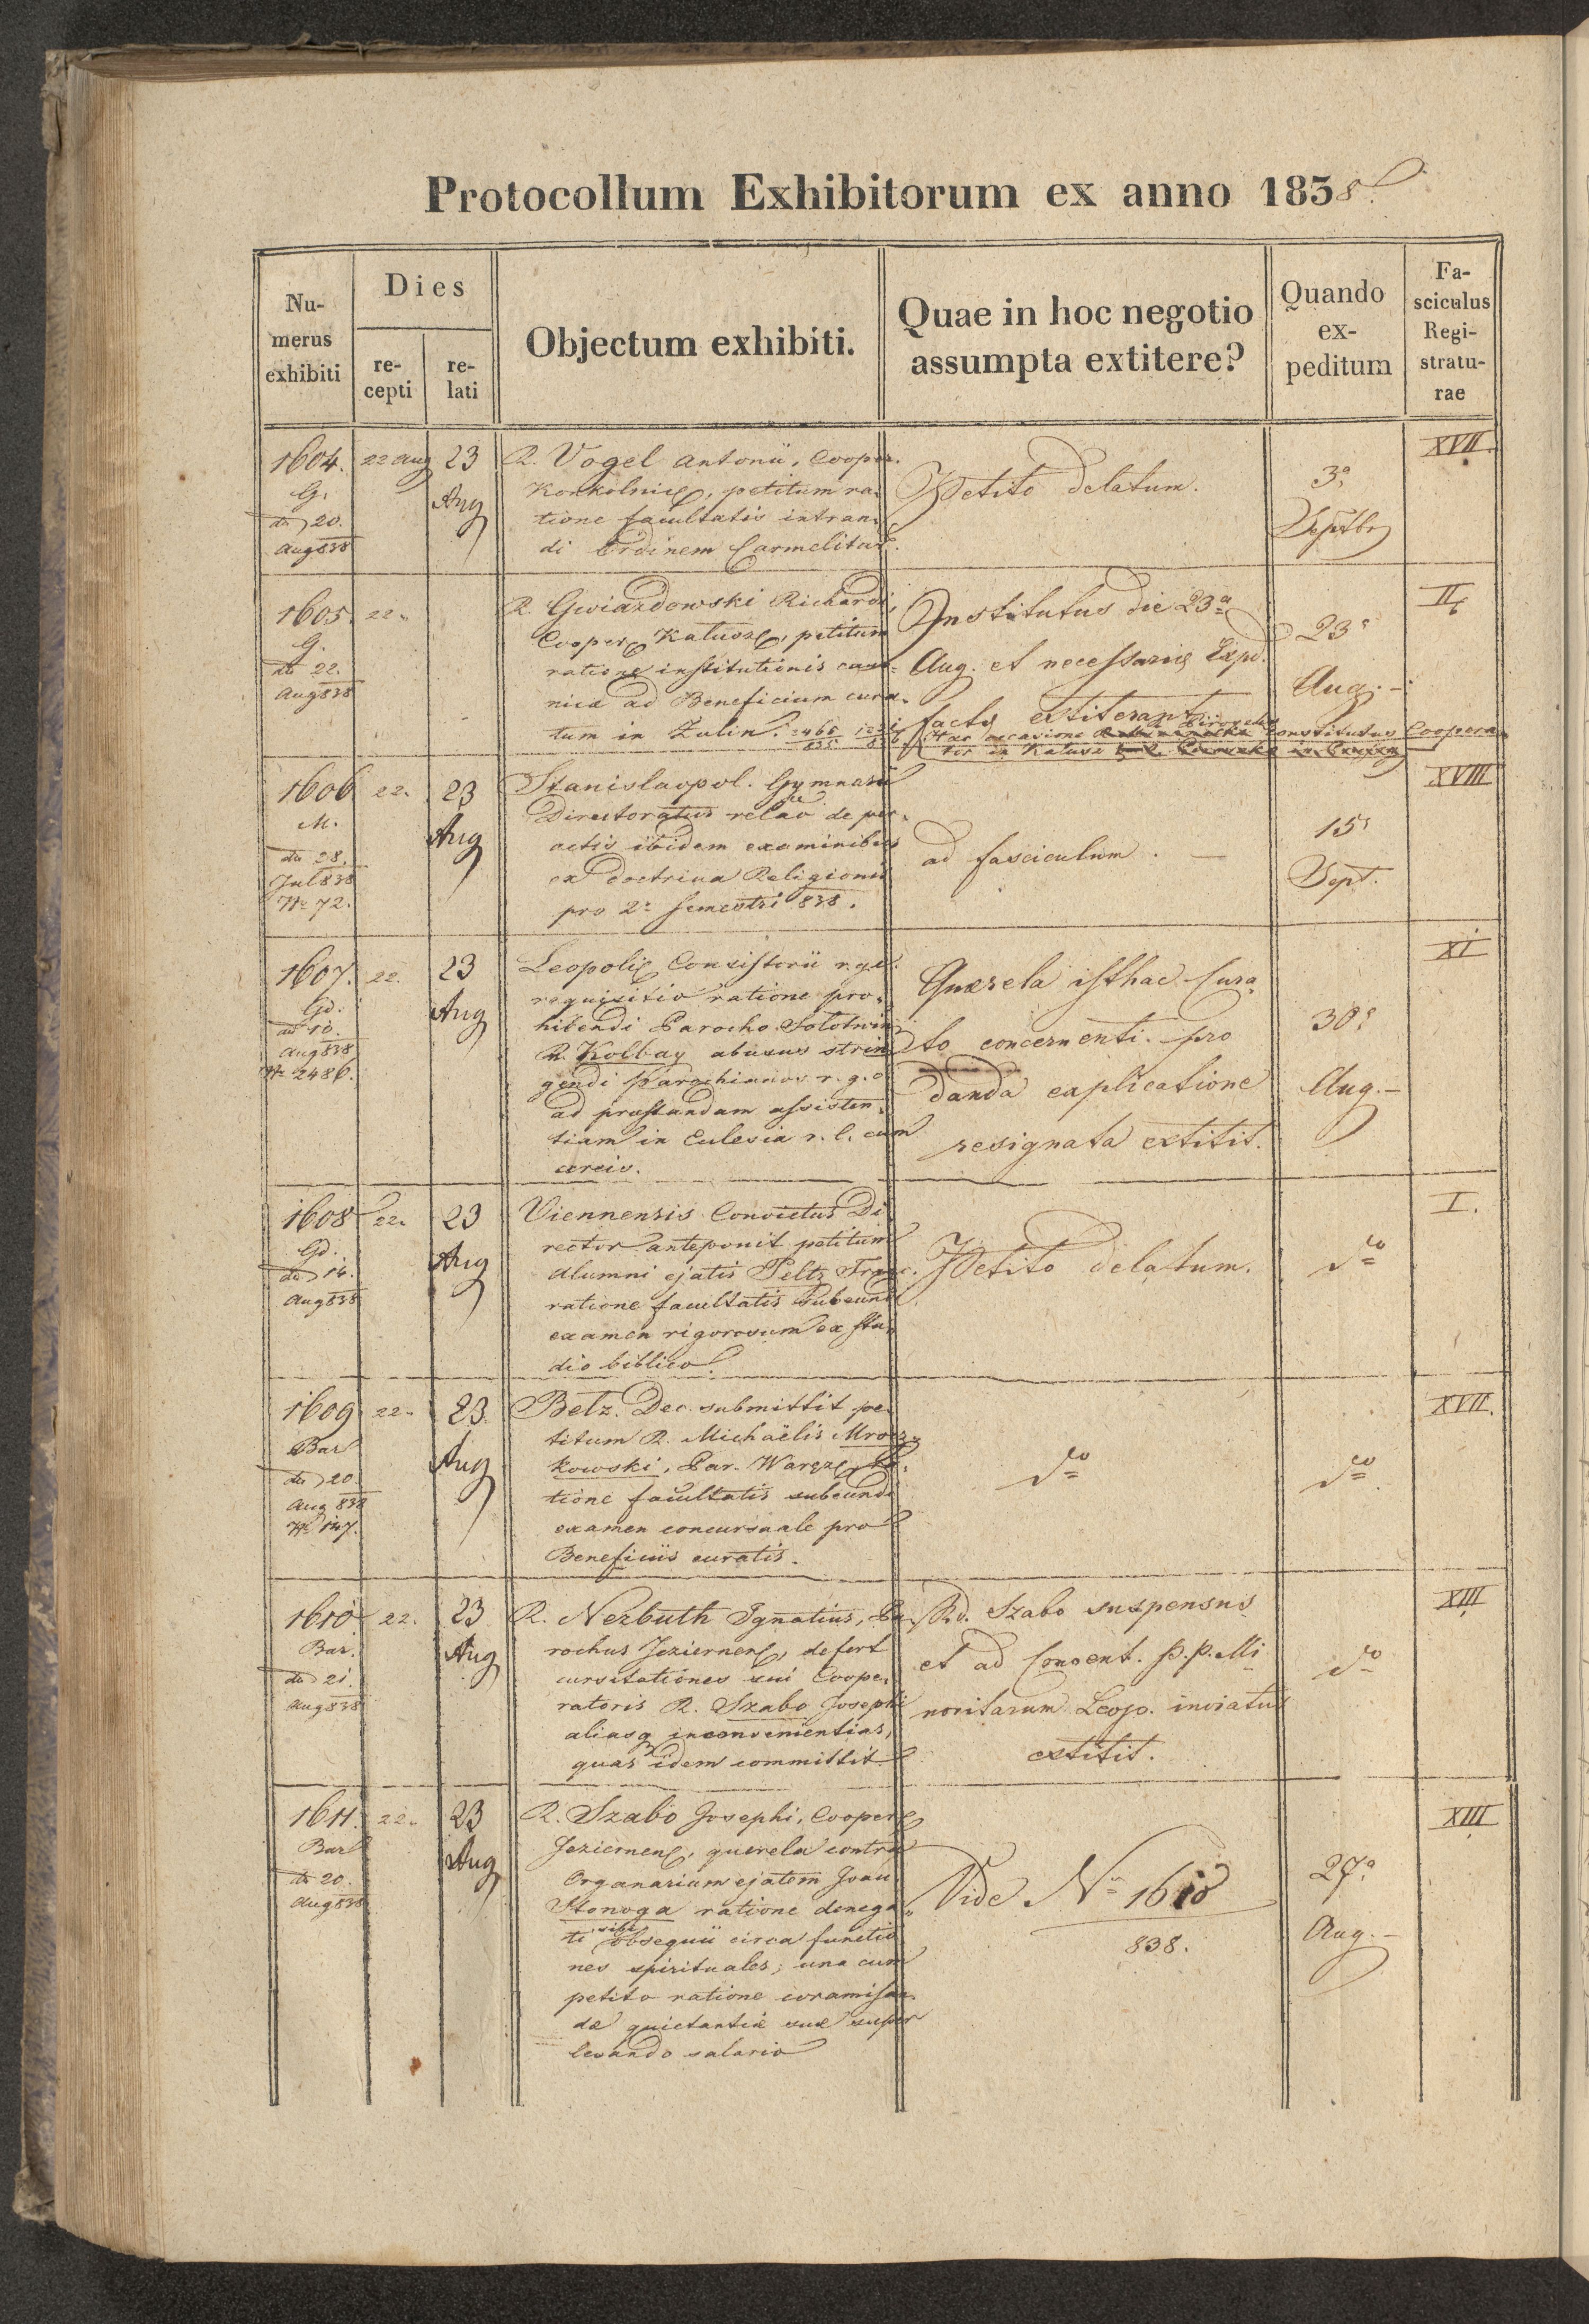 Protocollum Exhibitorum ex anno 1838.
Nu-
merus
exhibiti
Dies
re-
cepti
re-
lati
Objectum exhibiti.
Quae in hoc negotio
assumpta extitere?
Quando
ex-
peditum
Fa-
sciculus
Regi-
stratu-
rae
1604.
G.
do 20.
Aug 838
22 Aug
23
Aug
R. Vogel Antonii, Cooper.
Konkolnic, petitum ra-
tione facultatis intran-
di Ordinem Carmelitar.
Petito delatum.
3a
Septbr
XVII.
1605
G.
do 22.
Aug 838
22.
R. Gwiazdowski Richardi,
Cooper Kalusz, petitum
ratione institutionis cano-
nica ad Beneficium cura-
tum in Zulin.
Institutus die 23a
Aug. et necessariae Expd.
factae extiterant
Hac occasione constitutus Coopera-
tor in Kalusz
23a
Aug.
II.
1606
M.
do 28.
Jul 838
No 72.
22.
23
Aug
Stanislaopol. Gymnasii
Directoratus relatio de per-
actis ibidem examinibus
ex doctrina Religionis
pro 2o semestri 838.
ad fasciculum. —
15a
Sept.
XVIII
1607.
Gd.
do 10.
Aug 838
No 2486.
22.
23
Aug
Leopoli Consistorii r.g.c.
requisitio ratione pro-
hibendi Parocho Solotwin
R. Kolbay abusus strin-
gendi Parochianos r. g. c
ad praestandam assisten-
tiam in Eclesia r. l. cum
cereis.
Querela isthac Cura-
to concernenti pro
danda explicatione
resignata extitit.
30a
Aug. —
XI
1608
Gd.
do 14.
Aug 838
22.
23
Aug
Viennensis Convictus Di
rector anteponit petitum
Alumni ejatis Peltz Franc.
ratione facultatis subeundi
examen rigorosum ex stu-
dio biblico.
Petito delatum.
do
I.
1609
Bar
do 20.
Aug 838
No 147.
22.
23
Aug
Belz. Dec. submittit pe-
titum R. Michaëlis Mrocz-
kowski, Par. Waręz, ra-
tione facultatis subeundi
examen concursuale pro
Beneficiis curatis.
do
do
XVII.
1610
Bar.
do 21.
Aug 838
22.
23
Aug
R. Nezbuth Ignatius, Pa-
rochus Jeziernen, defert
cursitationes sui Coope-
ratoris R. Szabo Josephi
aliasq inconvenientias,
quas idem committit
Rd. Szabo suspensus
et ad Convent. P. P. Mi-
noritarum Leop. inviatus
extitit.
do
XIII
1611.
Bar
do 20.
Aug 838
22.
23
Aug
R. Szabo Josephi, Cooper
Jeziernen, querela contra
Organarium ejatem Joan
Stonoga ratione denega-
ti sibi obsequii circa functio
nes spirituales; una cum
petito ratione coramisan-
dae quietantiae suae super
levando salario
Vide No 1610
838.
27a
Aug. —
XIII